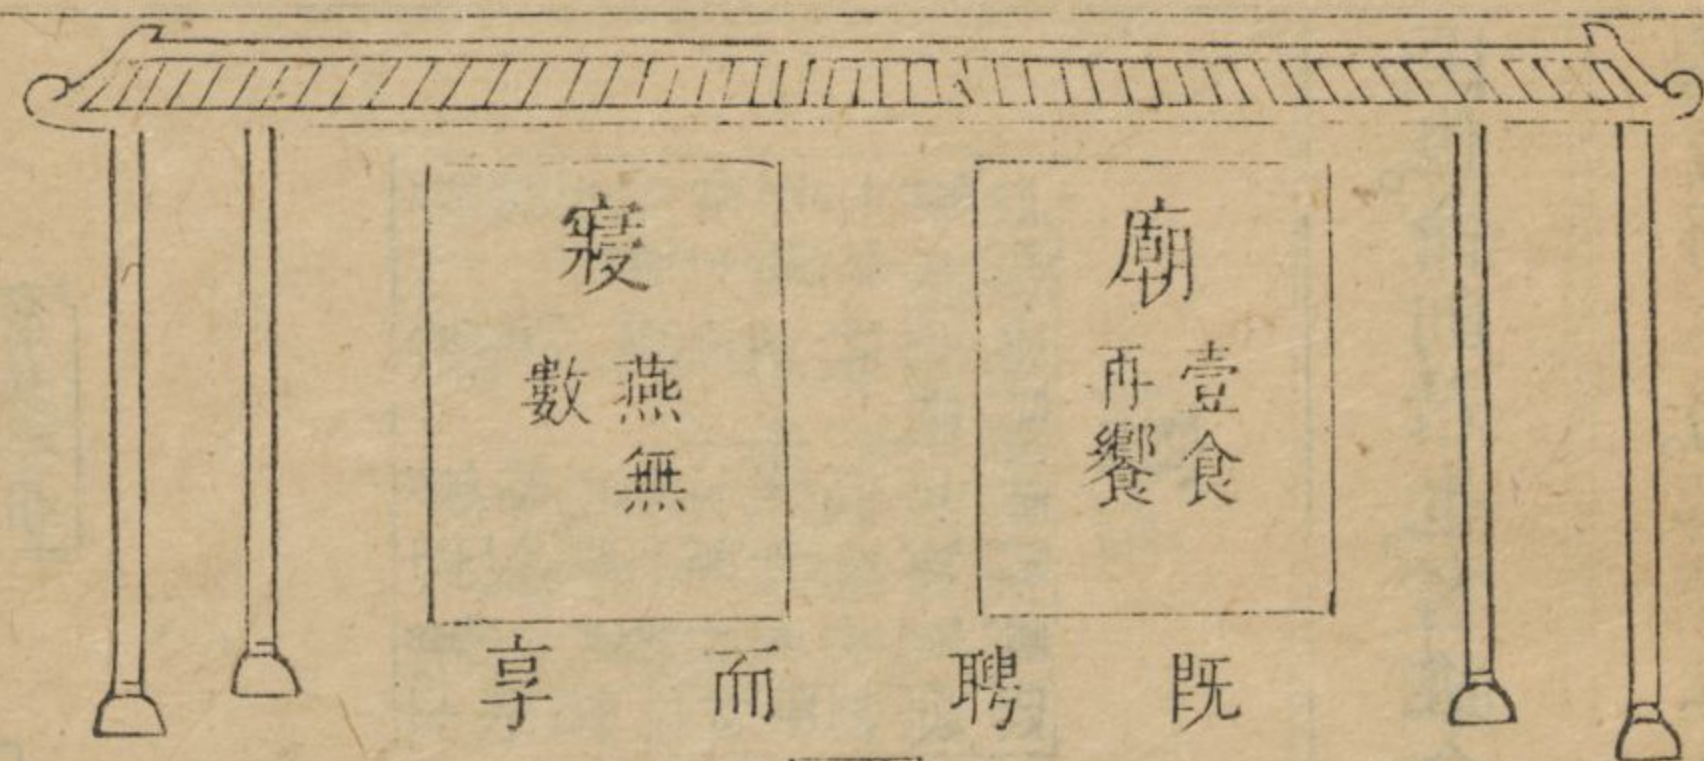 廟
壹食
再饗
寑
燕無
數
既聘而享